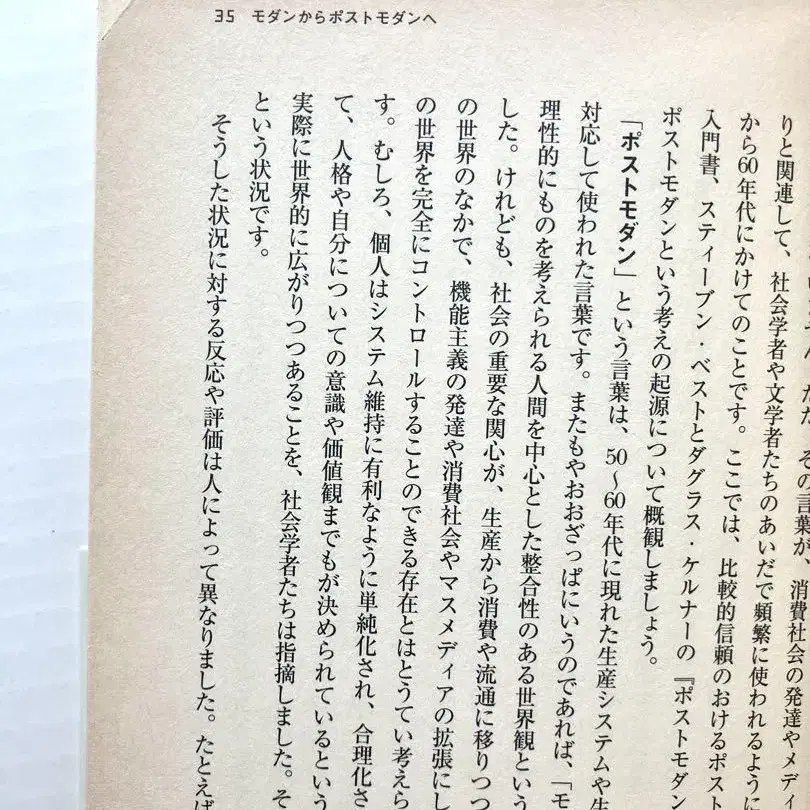 35 モダンからポストモダンへ
その言葉が、消費社会の発達やメディ
りと関連して、社会学者や文学者たちのあいだで頻繁に使われるように
から60年代にかけてのことです。ここでは、比較的信頼のおけるポスト
入門書、スティーブン・ベストとダグラス・ケルナーの『ポストモダン
ポストモダンという考えの起源について概観しましょう。
「ポストモダン」という言葉は、50〜60年代に現れた生産システムや生
対応して使われた言葉です。またもやおおざっぱにいうのであれば、「モ
理性的にものを考えられる人間を中心とした整合性のある世界観という
した。けれども、社会の重要な関心が、生産から消費や流通に移りつつ
の世界のなかで、機能主義の発達や消費社会やマスメディアの拡張にし
の世界を完全にコントロールすることのできる存在とはとうてい考えら
す。むしろ、個人はシステム維持に有利なように単純化され、合理化さ
て、人格や自分についての意識や価値観までもが決められているという
実際に世界的に広がりつつあることを、社会学者たちは指摘しました。そ
という状況です。
そうした状況に対する反応や評価は人によって異なりました。たとえば